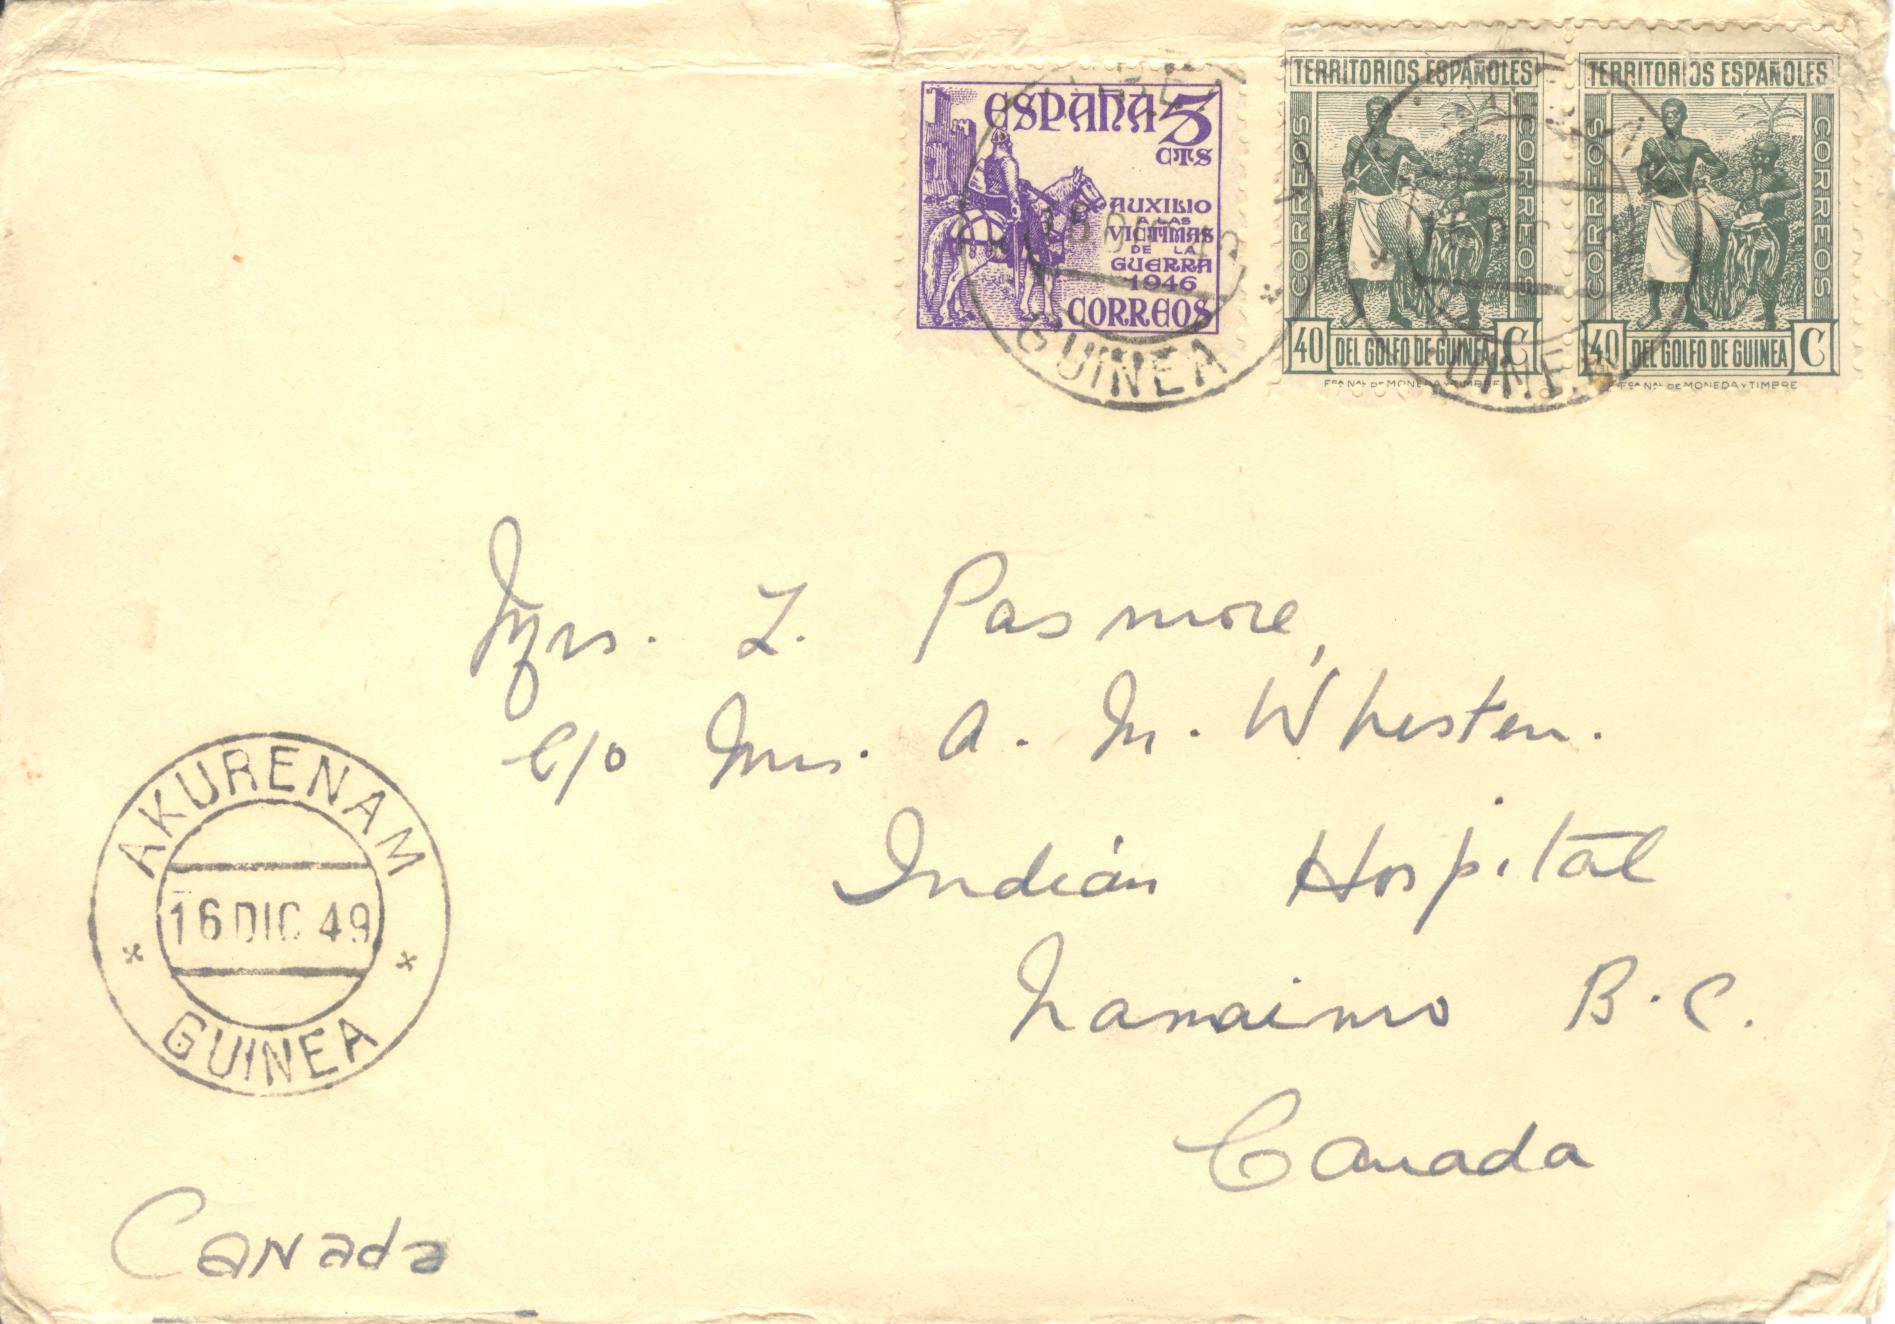 ESPAÑA 5
CTS
AUXILIO
A LAS
VICTIMAS
DE LA
GUERRA
1946
CORREOS
TERRITORIOS ESPAÑOLES
CORREOS
CORREOS
40 DEL GOLFO DE GUINEA C
FCA NAL DE MONEDA Y TIMBRE
TERRITORIOS ESPAÑOLES
CORREOS
CORREOS
40 DEL GOLFO DE GUINEA C
FCA NAL DE MONEDA Y TIMBRE
GUINEA
GUINEA
Mrs. L. Pasmore,
c/o Mrs. A. M. Whisten.
Indian Hospital
Nanaimo B.C.
Canada
AKURENAM
16 DIC 49
GUINEA
Canada